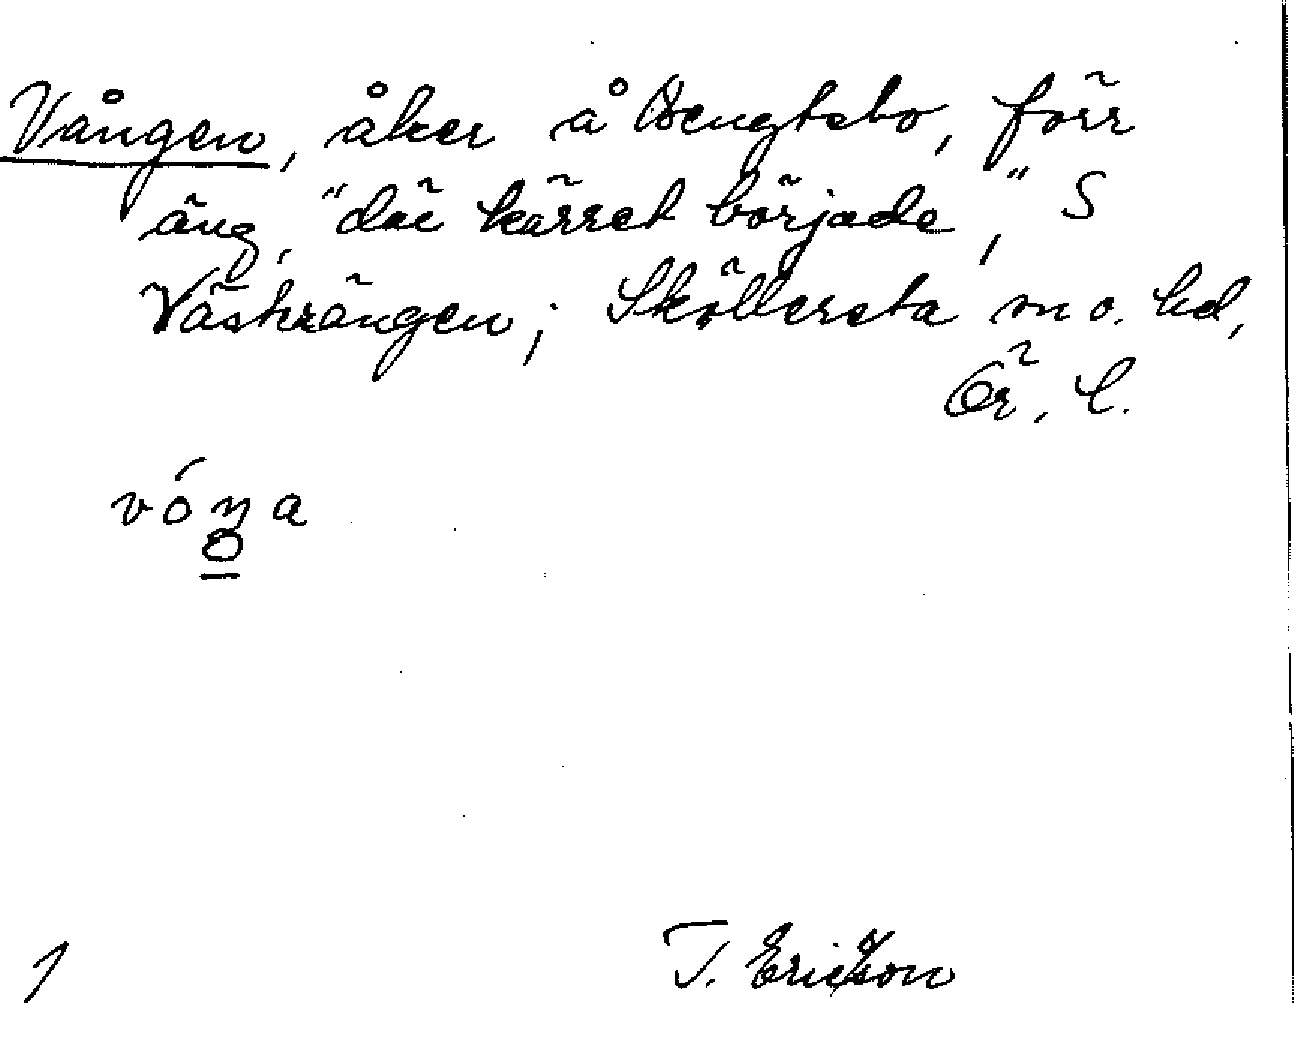 Vången, åker å Bengtsbo, förr
äng, "där kärret började," S
Västrängen; Sköllersta sn o. hd,
Ör. l.
vóŋa
1
T. Ericson